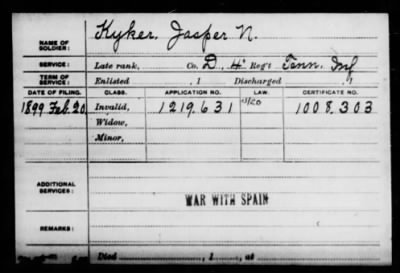 NAME OF SOLDIER: Kyker, Jasper N.
SERVICE: Late rank, Co. D, 4" Reg't Tenn. Inf
TERM OF SERVICE: Enlisted , 1 Discharged , 1
DATE OF FILING. CLASS. APPLICATION NO. LAW. CERTIFICATE NO.
1899 Feb. 20 Invalid, 1219.631 1008.303
Widow,
Minor,
ADDITIONAL SERVICES:
WAR WITH SPAIN
REMARKS:
Died , 1 , at